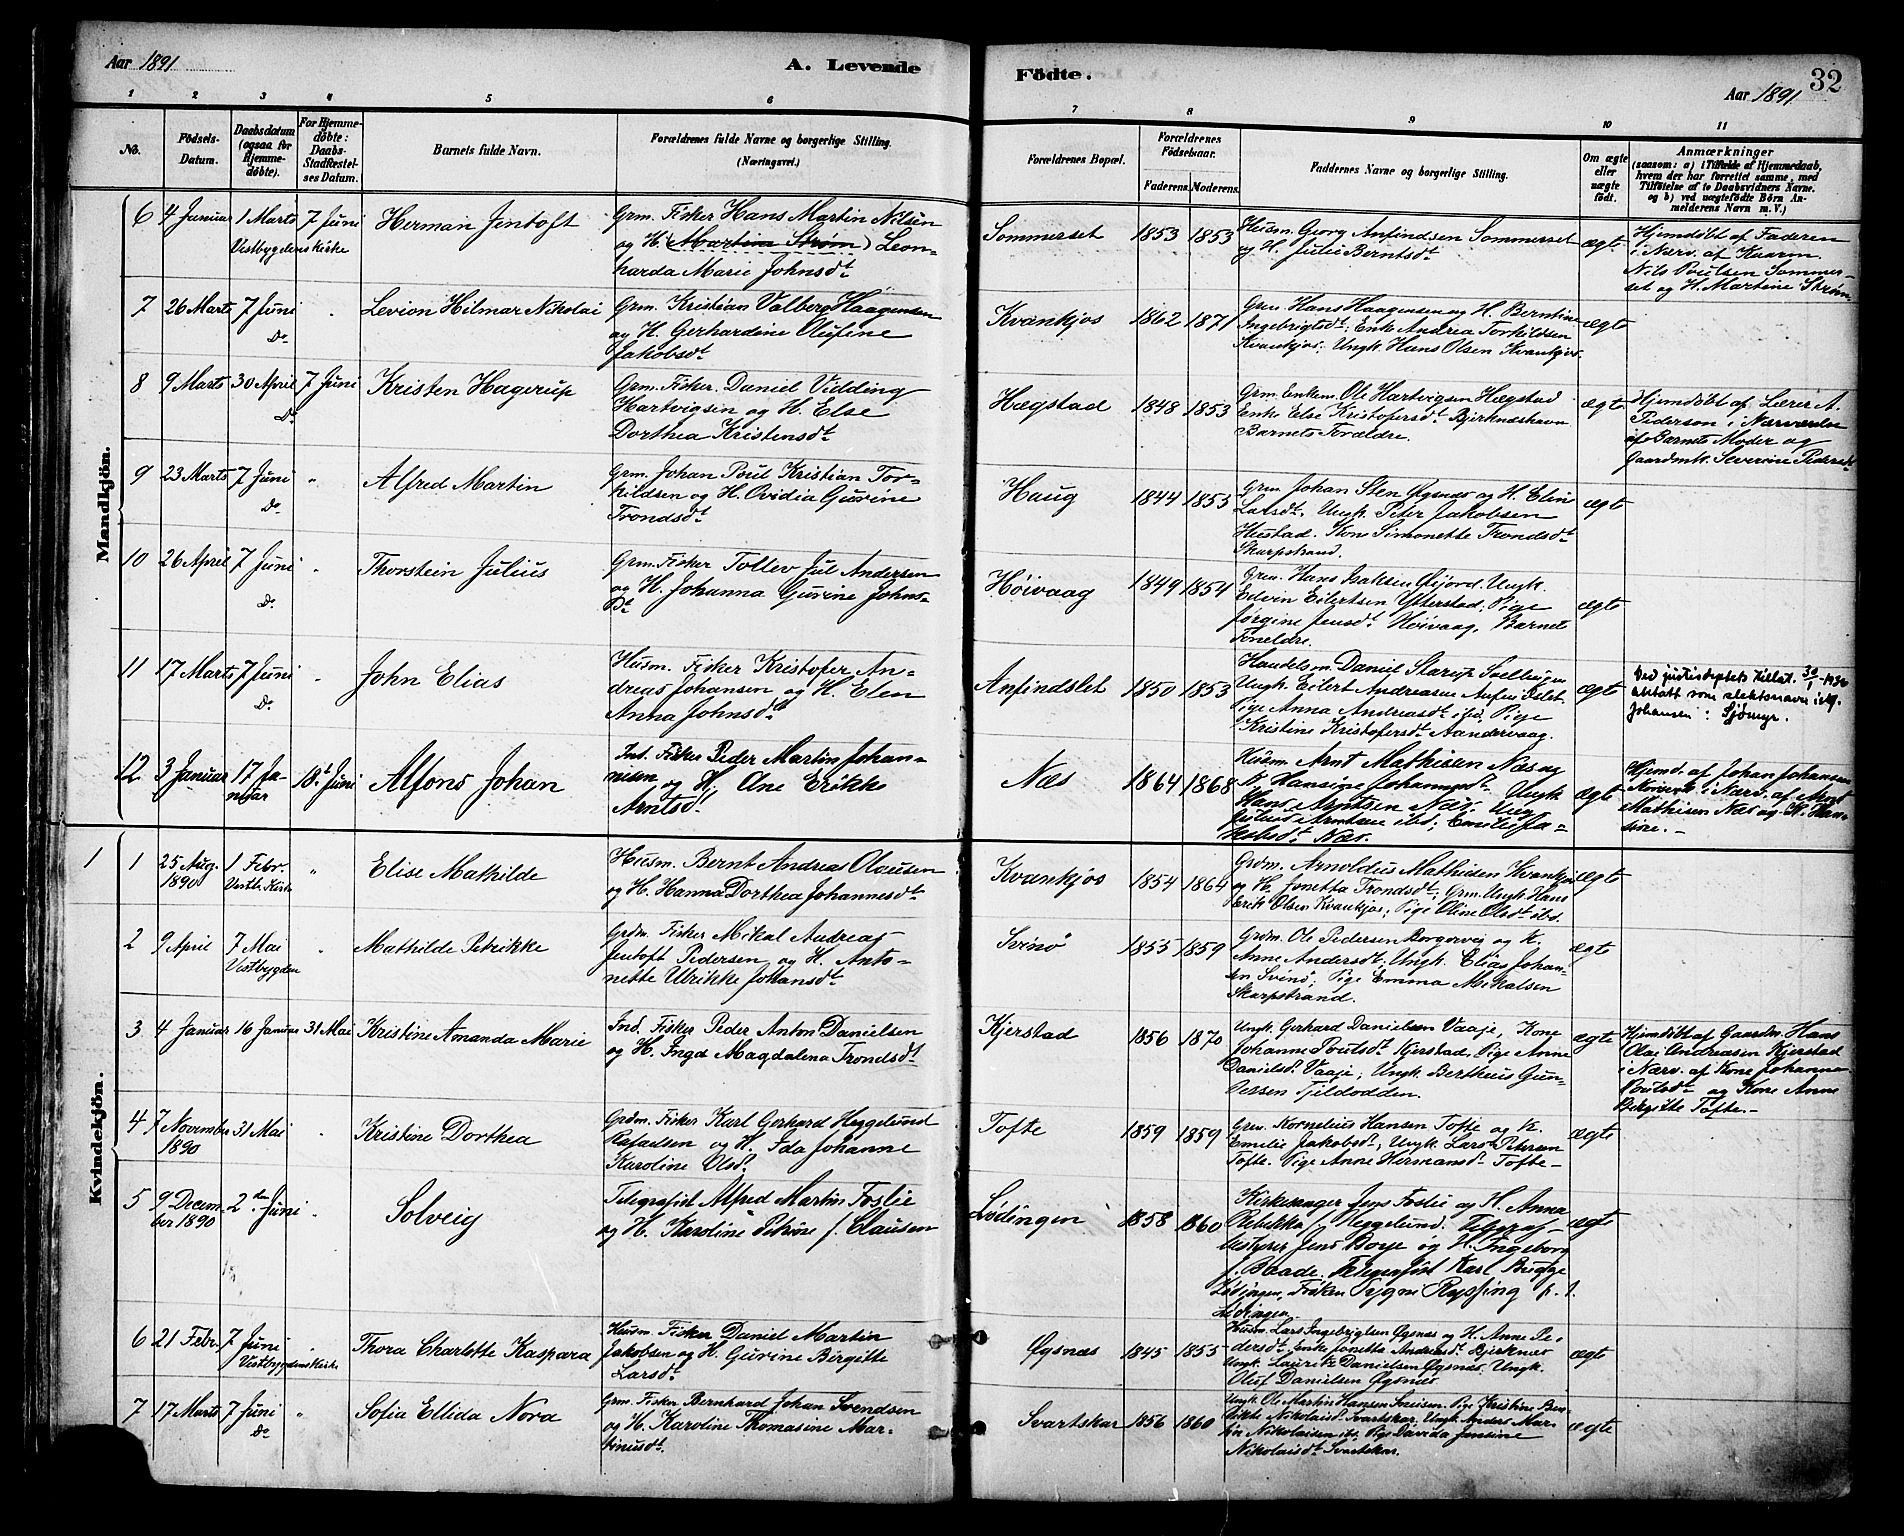 Aar 1891
A. Levende
Födte.
32
Aar 1891
1 2 3 4 5 6 7 8 9 10 11
No.
Födsels-
Datum.
Daabsdatum
(ogsaa for
Hjemme-
döbte).
For Hjemme-
döbte:
Daabs-
Stadfæstel-
ses Datum.
Barnets fulde Navn.
Forældrenes fulde Navne og borgerlige Stilling.
(Næringsvei.)
Forældrenes Bopæl.
Forældrenes
Födselsaar.
Faderens. Moderens.
Faddernes Navne og borgerlige Stilling.
Om ægte
eller
uægte
födt.
Anmærkninger
(saasom: a) i Tilfælde af Hjemmedaab,
hvem der har forrettet samme, med
Tilföielse af to Daabsvidners Navne.
og b) ved uægtefödte Börn An-
melderens Navn m. V.)
Mandkjön.
6 4 Januar 1 Marts 7 Juni
Vestbygdens Kirke
Herman Jentoft
Grm. Fisker Hans Martin Nilsen
og H. (Martina Strøm) Leon-
harda Marie Johnsdt
Sommerset 1853 1853
Husm. Georg Anfindsen Sommerset
og H. Julie Berntsdt
ægte
Hjemdöbt af Faderen
i Nærv. af Kaarm.
Nils Poulsen Sommer-
set og H. Martine Strøm
7 26 Marts 7 Juni "
Do
Levion Hilmar Nikolai
Grm. Kristian Valberg Haagensen
og H. Gerhardine Olufine
Jakobsdt
Kvankjos 1862 1871
Grm. Hans Haagensen og H. Berntine
Ingebrigtsdt; Enke Andrea Torkildsen
Kvankjos; Ungk. Hans Olsen Kvankjos
ægte
8 9 Marts 30 April 7 Juni
Do
Kristen Hagerup
Grm. Fisker. Daniel Vidding
Hartvigsen og H. Else
Dorthea Kristensdt
Hægstad 1848 1853
Grm. Enkem. Ole Hartvigsen Hægstad
Enke Else Kristofersdt Bjerkneshavn
Barnets Forældre.
ægte
Hjemdöbt af Lærer A.
Pedersen i Nærværelse
af Barnets Moder og
Gaardmk. Severine Pedersdt
9 23 Marts 7 Juni "
Do
Alfred Martin
Grm. Johan Poul Kristian Tor-
kildsen og H. Ovidia Gurine
Trondsdt
Haug 1844 1853
Grm. Johan Sten Øgsnes og H. Elen
Larsdt, Ungk. Peter Jakobsen
Hustad. Kone Simonette Trondsdt
Skarpstrand.
ægte
10 26 April 7 Juni "
Do
Thorstein Julius
Grm. Fisker Tollev Jul Andersen
og H. Johanna Gurine Johns-
Dt
Höivaag 1849 1854
Grm. Hans Isaksen Øijord. Ungk.
Edvin Eilertsen Ytterstad; Pige
Jørgine Jensdt Höivaag, Barnets
Foreldre.
ægte
11 17 Marts 7 Juni "
Do
John Elias
Husm. Fisker Kristofer An-
dreas Johansen og H. Elen
Anna Johnsdt
Anfindslet 1850 1853
Handelsm Daniel
Ungk. Eilert Andreasen Anfindslet
Pige Anna Andreasdt ibd. Pige
Kristine Kristofersdt Aandervaag.
ægte
Ved justisdeptets tillat. 30/1-1930
antatt som slektsnavn i st. f.
Johansen: Sjømyr.
12 3 Januar 17 Ja- 18de Juni
nuar
Alfons Johan
Ind. Fisker Peder Martin Johan-
nesen og H. Ane Erikke
Arntsd.
Næs 1864 1868
Husm Arnt Mathisen Næs og
H. Hansine Johannesdt. Ungk
Hans Arntsen Næs. Ung
Arntsen ibd; Emilie Ja-
kobsdt Næs.
ægte
Hjemd. af Johan Johansen
i Nærv. af Arnt
Mathisen Næs og K. Han-
sine.-
Kvindekjön.
1
1 25 Aug. 1 Febr. "
1890 Vestb. Kirke
Elise Mathilde
Husm. Bernt Andreas Olausen
og H. Hanna Dorthea Johannesdt
Kvankjos 1854 1864
Grdm. Arnoldus Mathisen Kvankjos
og H. Jonetta Trondsdt; Grm. Ungk Hans
Erik Olsen Kvankjos; Pige Oline Olsdt ibd.
ægte
2 9 April 7 Mai "
Vestbygden
Mathilde Petrikke
Grdm. Fisker Mikal Andreas
Jentoft Pedersen og H. Anto-
nette Ulrikke Johansdt
Svinö 1855 1859
Grdm. Ole Pedersen Borgervej og K.
Anne Andersdt; Ungk. Elias Johan-
sen Svinö; Pige Emma Mikalsen
Skarpstrand.
ægte
3 4 Januar 16 Januar 31 Mai
Kristine Amanda Marie
Ind. Fisker Peder Anton Danielsen
og H. Inga Magdalena Trondsdt
Kjerstad 1856 1870
Ungk. Gerhard Danielsen Vaaje, Kone
Johanne Poulsdt Kjerstad, Pige Anne
Danielsdt Vaaje; Ungk. Bertheus Gun-
dersen Tjeldodden.
ægte
Hjemdöbt af Gaardm. Hans
Olai Andreasen Kjerstad
i Nærv. af Kone Johanna
Poulsdt og Kone Anne
Birgitte Tofte.-
4 7 November 31 Mai "
1890
Kristine Dorthea
Grdm. Fisker Karl Gerhard Heggelund
Rafaelsen og H. Ida Johanne
Karoline Olsd.
Tofte 1859 1859
Grm. Kornelius Hansen Tofte og K.
Emilie Jakobsdt; Ungk. Lars Petersen
Tofte. Pige Anne Hermansdt Tofte-
ægte
5 9 Decem- 2den Juni "
ber 1890
Solveig
Telegrafist Alfred Martin Foslie
og H. Karoline Petrine f. Clausen
Lödingen 1858 1860
Kirkesanger Jens Foslie og H. Anna
Rebekka f. Heggelund. Telegraf-
bestyrer Jens Boye og H. Ingeborg
f. Baade. Telegrafist Karl Bugge
Lödingen, Fröken Signe Rypping p. t.
Lödingen
ægte
6 21 Febr. 7 Juni "
Vestbygdens Kirke
Thora Charlotte Kaspara
Husm. Fisker Daniel Martin
Jakobsen og H. Gurine Birgitte
Larsdt
Øgsnæs 1845 1855
Husm. Lars Ingebrigtsen Øgsnæs og H. Anne Pe-
dersdt. Enke Jonetta Andreasdt Bjerknes
Ungk. Lauritz Danielsen Øgsnæs. Ungk.
Oluf Danielsen Øgsnæs.
ægte
7 17 Marts 7 Juni "
Do
Sofia Ellida Nora
Grm. Fisker Bernhard Johan Svendsen
og H. Karoline Thomasine Mar-
tinusdt.
Svartskar 1856 1860
Ungk. Ole Martin Hansen Pige Kristine Ben-
dikte Nikolaisdt Svartskar, Ungk. Anders Mar-
tin Nikolaisen ibd; Pige Davida Jensine
Nikolaisdt Svartskar.
ægte